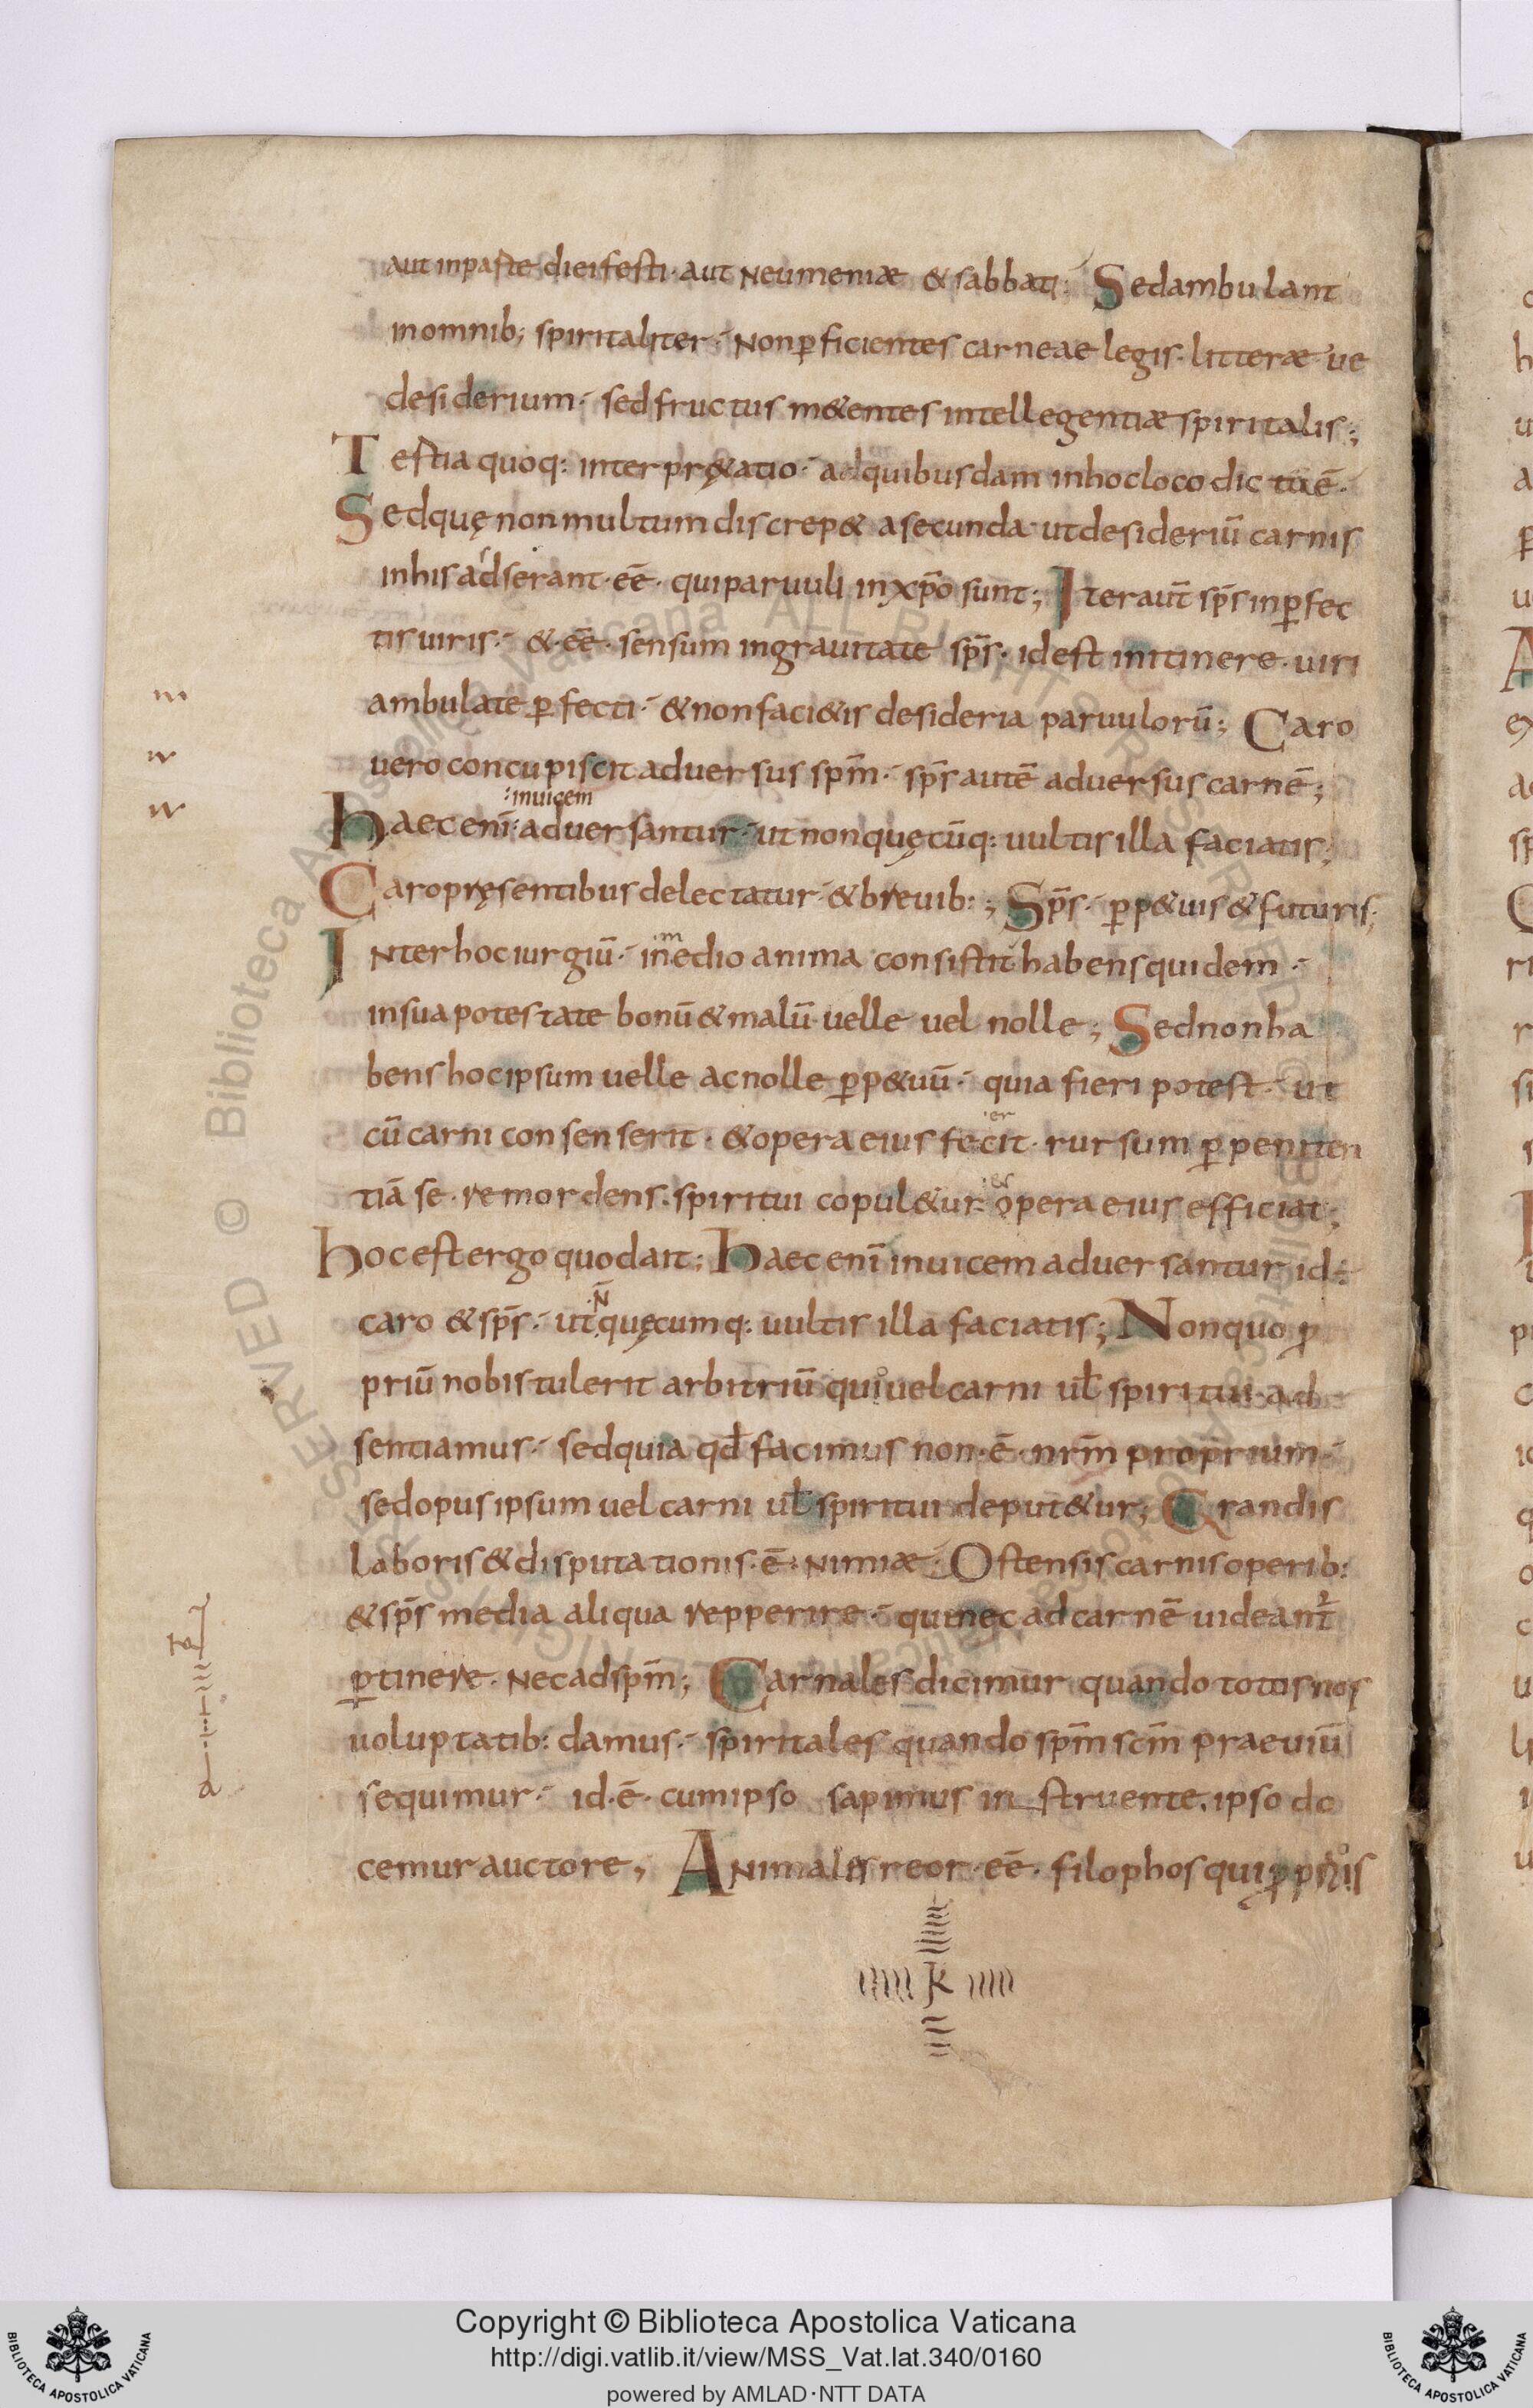 aut inpaste diei festi· aut Neumeniæ & sabbati; Sedambulant
inomnib; spiritaliter·- Nonꝑficientes carneae legis· litteræ ue
desiderium·- sedfructus m&entes intellegentiæ spiritalis;
Testia quoq: interpr&atio·- adquibusdam inhocloco dic tū ē·
Sedquę nonmultum discrep& asecunda· utdesideriū carnis
inhis adserant· eē· quiparuuli inxp̄o sunt; Iteraut̄ sp̄s inꝑfec
tis uiris·- & eē· sensum ingrauitate sp̄s· idest initinere· uiri
ambulate ꝑfecti·- & nonfaci&is desideria paruulorū; Caro
uero concupiscit aduersus spm̄·- sp̄s autē aduersus carnē;
:inuicem
haec eni: aduersantur·- ut nonquęcūq: uultis illa faciatis;
Caro pręsentibus delectatur·- & breuib:; Sp̄s·- ꝑp&uis & futuris;
m
Inter hoc iurgiū·- inedio anima consistit habens quidem·-
insua potestate bonū & malū· uelle uel nolle; Sednonha
bens hocipsum uelle acnolle ꝑp&uū·- quia fieri potest·- ut
er
cū carni consenserit· & opera eius fecit· rursum ꝑ peniten
tiā se· remordens· spiritui copul&ur· opera eius efficiat;
hoc est ergo quodait; haec eni inuicem aduersantur id÷
·N̄
caro & sp̄s·- ut quęcumq: uultis illa faciatis; Nonquo ꝓ
priū nobis tulerit arbitriū qui uel carni ul̄ spiritui· ad
sentiamus·- sedquia qd̄ facimus non·ē· nrm̄ proprium·-
sedopus ipsum uel carni ul̄ spiritui deput&ur; Grandis
laboris & disputationis·ē· Nimiæ· Ostensis carnis operib:
& sp̄s media aliqua repperire·- quinec ad carnē uideant̄
ꝑtinere· Necadspm̄; Carnales dicimur quando totus nos
uoluptatib: damus·- spiritales quando spm̄ scm̄ praeuiū
sequimur·- id·ē· cumipso sapimus in struente· ipso do
cemur auctore; Animales reor· eē· filophos qui
K
Copyright © Biblioteca Apostolica Vaticana
http://digi.vatlib.it/view/MSS_Vat.lat.340/0160
powered by AMLAD·NTT DATA